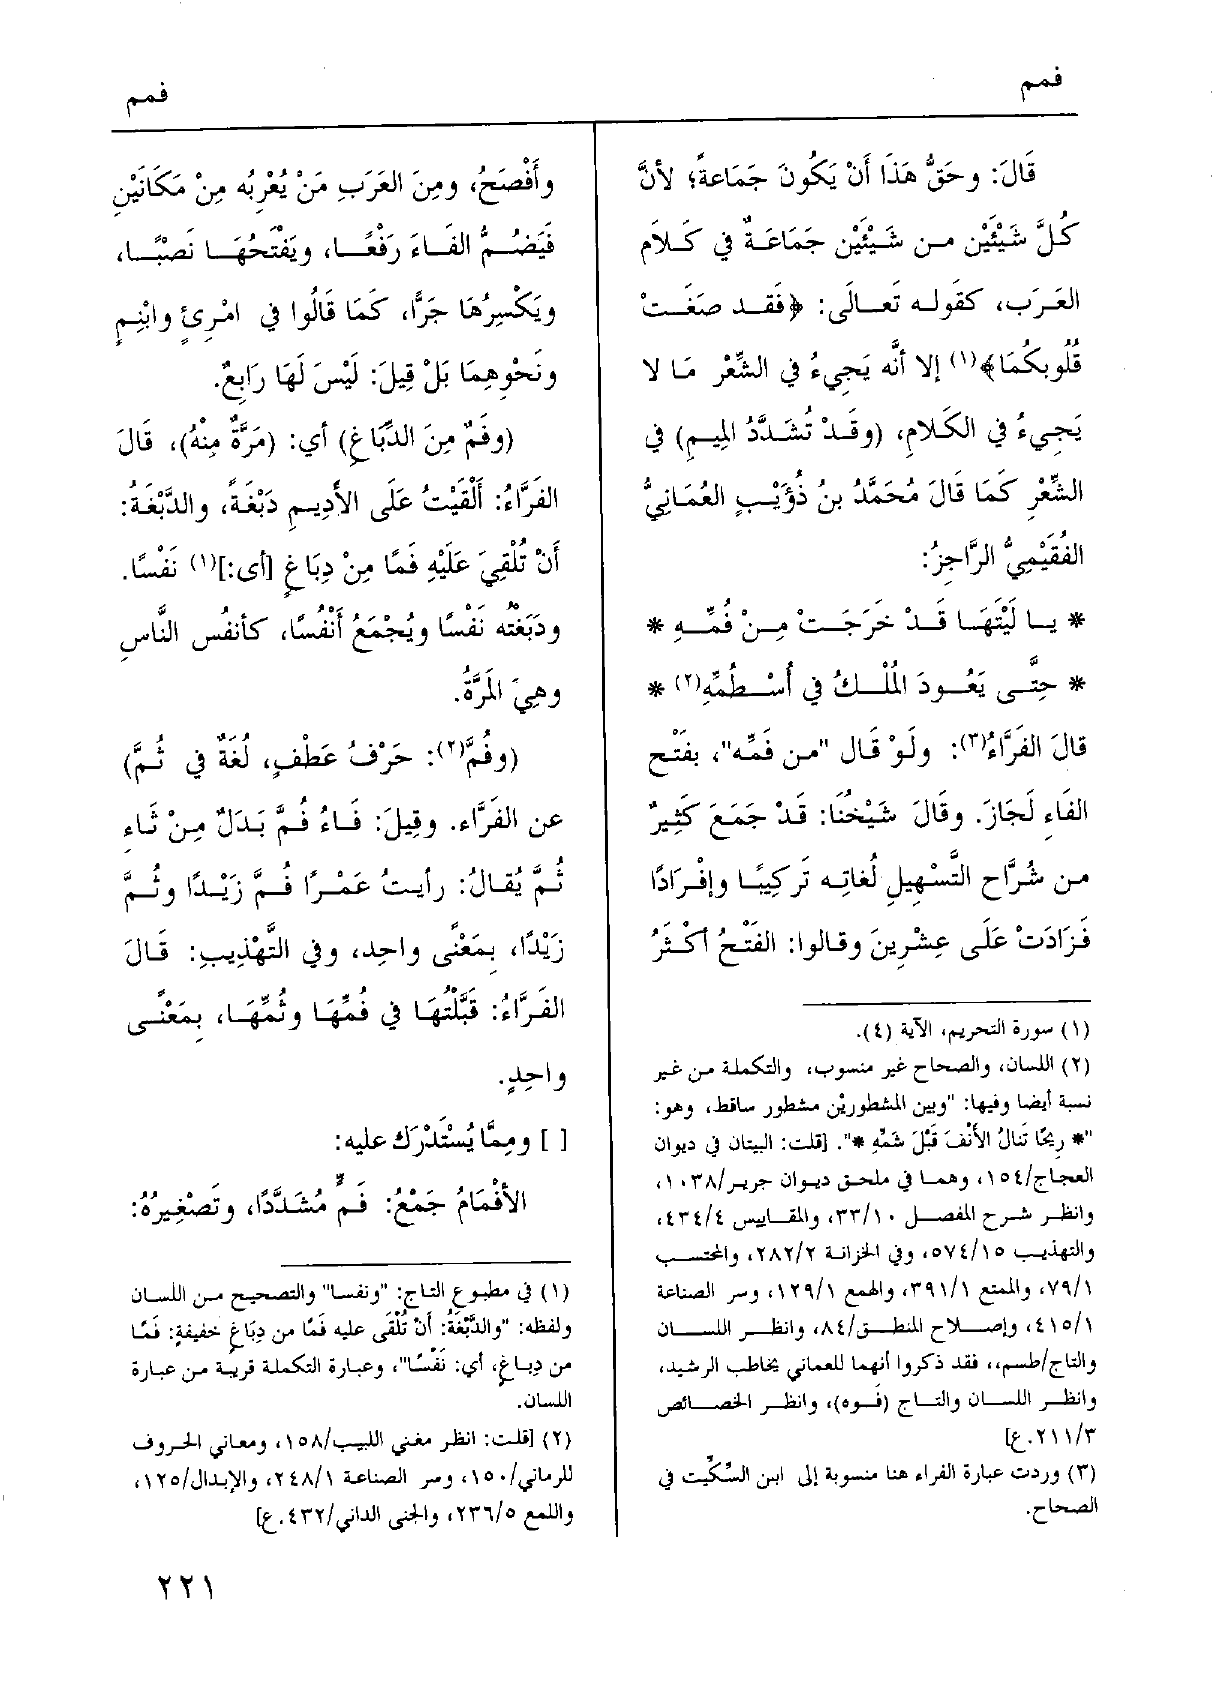 فمم
فمم
قَالَ: وحَقُّ هَذَا أَنْ يَكُونَ جَمَاعةً؛ لأنَّ
كُلَّ شَيْئَيْن من شَيْئَيْن جَمَاعَةٌ في كَلَام
العَرَب، كقوله تَعالَى: ﴿فقد صَغَتْ
قُلُوبكُمَا﴾(١) إلا أنَّه يَجِيءُ في الشِّعْر مَا لا
يَجِيءُ في الكَلَامِ، (وقَدْ تُشَدَّدُ المِيم) في
الشِّعْرِ كَمَا قَالَ مُحَمَّدُ بنُ ذُؤَيْبٍ العُمَانِيُّ
الفُقَيْمِيُّ الرَّاجِزُ:
* يا لَيْتَهَا قَدْ خَرَجَتْ مِنْ فُمِّهِ *
* حِتَّى يَعُودَ المُلْكُ في أُسْطُمِّهِ(٢) *
قالَ الفَرَّاءُ(٣): ولَوْ قَال "من فَمِّه"، بفَتْح
الفَاءِ لَجَازَ. وقَالَ شَيْخُنَا: قَدْ جَمَعَ كَثِيرٌ
من شُرَّاحِ التَّسْهِيلِ لُغَاتِه تَرْكِيبًا وإفْرَادًا
فَزَادَتْ عَلَى عِشْرِينَ وقالوا: الفَتْحُ أكْثَرُ
(١) سورة التحريم، الآية (٤).
(٢) اللسان، والصحاح غير منسوب، والتكملة من غير
نسبة أيضا وفيها: "وبين المشطوريْن مشطور ساقط، وهو:
"* رِيحًا تَنالُ الأَنْفَ قَبْلَ شَمِّهِ *". [قلت: البيتان في ديوان
العجاج/١٥٤، وهما في ملحق ديوان جرير/١٠٣٨،
وانظر شرح المفصل ٣٣/١٠، والمقاييس ٤٣٤/٤،
والتهذيب ٥٧٤/١٥، وفي الخزانة ٢٨٢/٢، والمحتسب
٧٩/١، والممتع ٣٩١/١، والهمع ١٢٩/١، وسر الصناعة
٤١٥/١، وإصلاح المنطق/٨٤، وانظر اللسان
والتاج/طسم،، فقد ذكروا أنهما للعماني يخاطب الرشيد،
وانظر اللسان والتاج (فوه)، وانظر الخصائص
٢١١/٣.ع]
(٣) وردت عبارة الفراء هنا منسوبة إلى ابن السِّكِّيت في
الصحاح.
وأَفْصَحُ، ومِنَ العَرَبِ مَنْ يُعْرِبُه مِنْ مَكَانَيْنِ
فَيَضُمُّ الفَاءَ رَفْعًا، ويَفْتَحُهَا نَصْبًا،
ويَكْسِرُهَا جَرًّا، كَمَا قَالُوا في امْرِئٍ وابْنِمٍ
ونَحْوِهِمَا بَلْ قِيلَ: لَيْسَ لَهَا رَابِعٌ.
(وفَمٌ مِنَ الدِّبَاغِ) أي: (مَرَّةٌ مِنْهُ)، قَالَ
الفَرَّاءُ: أَلْقَيْتُ عَلَى الأدِيمِ دَبْغَةً، والدَّبْغَةُ:
أَنْ تُلْقِيَ عَلَيْهِ فَمًا مِنْ دِبَاغٍ [أى:](١) نَفْسًا.
ودَبَغْتُه نَفْسًا ويُجْمَعُ أَنْفُسًا، كأنفُسِ النَّاسِ
وهِيَ المَرَّةُ.
(وفُمَّ(٢): حَرْفُ عَطْفٍ، لُغَةٌ في ثُمَّ)
عن الفَرَّاء. وقِيلَ: فَاءُ فُمَّ بَدَلٌ مِنْ ثَاءِ
ثُمَّ يُقالُ: رأيتُ عَمْرًا فُمَّ زَيْدًا وثُمَّ
زَيْدًا، بمَعْنًى واحِد، وفي التَّهْذِيبِ: قَالَ
الفَرَّاءُ: قَبَّلْتُهَا في فُمِّهَا وثُمِّهَا، بِمَعْنًى
واحِدٍ.
[ ] ومِمَّا يُسْتَدْرَك عليه:
الأَفْمَامُ جَمْعُ: فَمٍّ مُشَدَّدًا، وتَصْغِيرُهُ:
(١) في مطبوع التاج: "ونفسا" والتصحيح من اللسان
ولفظه: "والدَّبْغَةُ: أَنْ تُلْقَى عليه فَمًا من دِبَاغٍ خفيفةٍ: فَمًا
من دِباغٍ، أي: نَفْسًا"، وعبارة التكملة قريبة من عبارة
اللسان.
(٢) [قلت: انظر مغني اللبيب/١٥٨، ومعاني الحروف
للرماني/١٥٠، وسر الصناعة ٢٤٨/١، والإبدال/١٢٥،
واللمع ٢٣٦/٥، والجنى الداني/٤٣٢.ع]
٢٢١